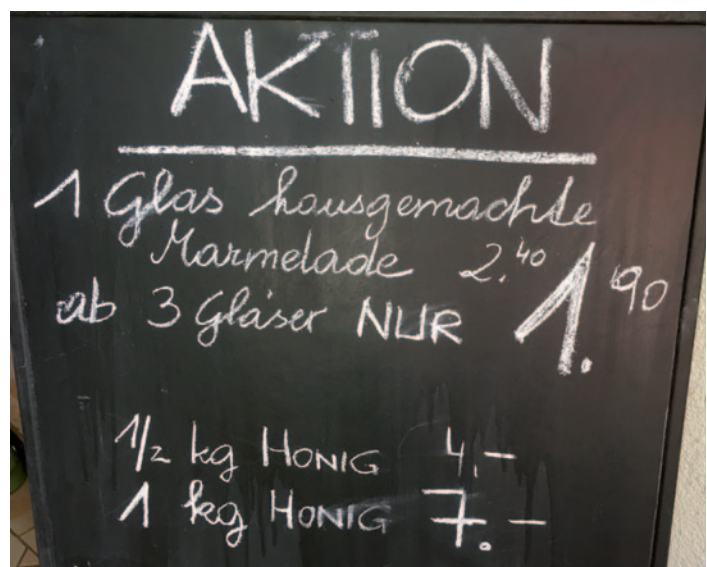 AKTION
1 Glas hausgemachte
Marmelade 2.40
ab 3 Gläser NUR 1.90
1/2 kg HONIG 4.-
1 kg HONIG 7.-